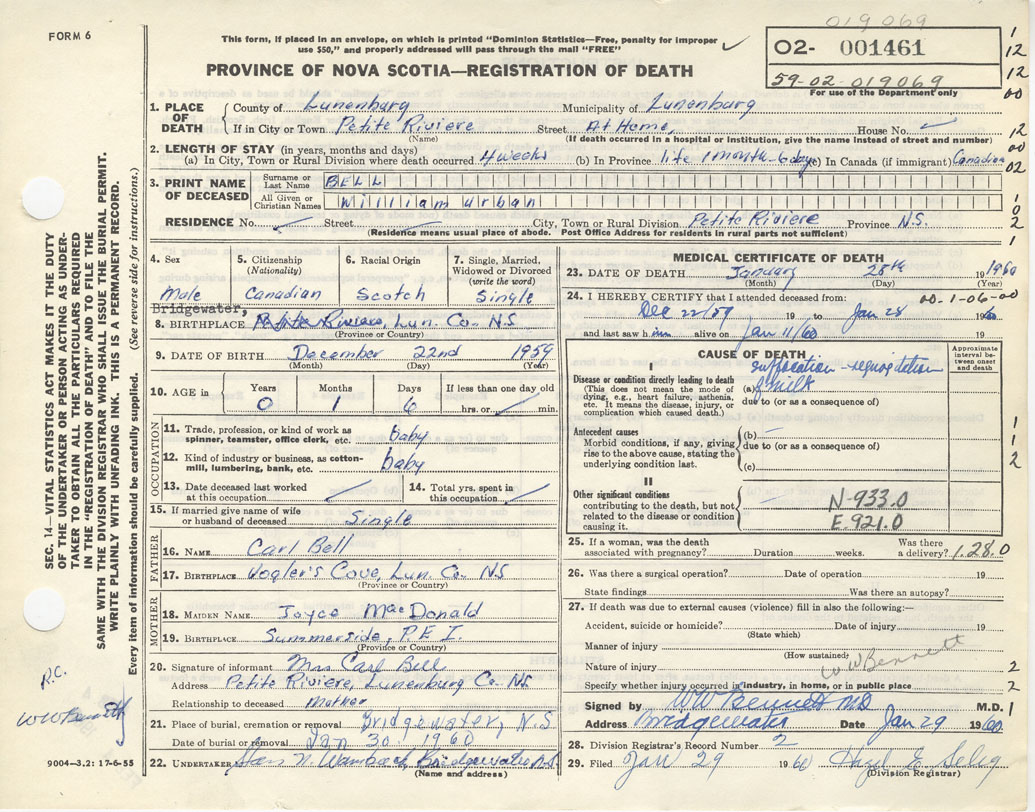 019069
FORM 6
This form, if placed in an envelope, on which is printed "Dominion Statistics—Free, penalty for improper
use $50," and properly addressed will pass through the mail "FREE"
PROVINCE OF NOVA SCOTIA—REGISTRATION OF DEATH
O2- 001461
59-02-019069
For use of the Department only
1. PLACE OF DEATH
County of Lunenburg Municipality of Lunenburg
If in City or Town Petite Riviere Street At Home, House No.
(Name) (If death occurred in a hospital or Institution, give the name instead of street and number)
2. LENGTH OF STAY (in years, months and days)
(a) In City, Town or Rural Division where death occurred 4 weeks (b) In Province life 1 month-6 days In Canada (if immigrant) Canadian
3. PRINT NAME OF DECEASED
Surname or Last Name BELL
All Given or Christian Names William urban
RESIDENCE No. Street City, Town or Rural Division Petite Riviere Province N.S.
(Residence means usual place of abode. Post Office Address for residents in rural parts not sufficient)
4. Sex
Male
5. Citizenship
(Nationality)
Canadian
6. Racial Origin
Scotch
7. Single, Married,
Widowed or Divorced
(write the word)
Single
Bridgewater,
8. BIRTHPLACE Petite Riviere, Lun. Co. N.S
(Province or Country)
9. DATE OF BIRTH December 22nd 1959
(Month) (Day) (Year)
10. AGE in
Years Months Days If less than one day old
0 1 6 hrs. or min.
OCCUPATION
11. Trade, profession, or kind of work as
spinner, teamster, office clerk, etc. baby
12. Kind of industry or business, as cotton-
mill, lumbering, bank, etc. baby
13. Date deceased last worked
at this occupation
14. Total yrs. spent in
this occupation
15. If married give name of wife
or husband of deceased Single
FATHER
16. NAME Carl Bell
17. BIRTHPLACE Vogler's Cove, Lun. Co. N.S
(Province or Country)
MOTHER
18. MAIDEN NAME Joyce MacDonald
19. BIRTHPLACE Summerside, P.E.I.
(Province or Country)
20. Signature of informant Mrs Carl Bell
Address Petite Riviere, Lunenburg Co. N.S
Relationship to deceased Mother
21. Place of burial, cremation or removal Bridgewater, N.S
Date of burial or removal Jan 30, 1960
22. UNDERTAKER Wambach, Bridgewater N.S
(Name and address)
MEDICAL CERTIFICATE OF DEATH
23. DATE OF DEATH January 28th 1960
(Month) (Day) (Year)
24. I HEREBY CERTIFY that I attended deceased from: 00-1-06-00
Dec 22/59 19 to Jan 28 1960
and last saw him alive on Jan 11/60
CAUSE OF DEATH
Approximate
interval be-
tween onset
and death
I
Disease or condition directly leading to death
(This does not mean the mode of
dying, e.g., heart failure, asthenia,
etc. It means the disease, injury, or
complication which caused death.)
suffocation - regurgitation
(a) of milk
due to (or as a consequence of)
Antecedent causes
Morbid conditions, if any, giving
rise to the above cause, stating the
underlying condition last.
(b) —
due to (or as a consequence of)
(c)
II
Other significant conditions
contributing to the death, but not
related to the disease or condition
causing it.
N-933.0
E.921.0
25. If a woman, was the death
associated with pregnancy? Duration weeks. Was there
a delivery? 1.28.0
26. Was there a surgical operation? Date of operation 19
State findings Was there an autopsy?
27. If death was due to external causes (violence) fill in also the following:—
Accident, suicide or homicide? Date of injury 19
(State which)
Manner of injury
(How sustained)
Nature of injury W W Bennett
Specify whether injury occurred in industry, in home, or in public place
Signed by W W Bennett MD M.D.
Address Bridgewater Date Jan 29 1960
28. Division Registrar's Record Number 2
29. Filed Jan 29 1960 Hazel E Selig
(Division Registrar)
SEC. 14—VITAL STATISTICS ACT MAKES IT THE DUTY
OF THE UNDERTAKER OR PERSON ACTING AS UNDER-
TAKER TO OBTAIN ALL THE PARTICULARS REQUIRED
IN THE "REGISTRATION OF DEATH" AND TO FILE THE
SAME WITH THE DIVISION REGISTRAR WHO SHALL ISSUE THE BURIAL PERMIT.
WRITE PLAINLY WITH UNFADING INK. THIS IS A PERMANENT RECORD.
Every item of information should be carefully supplied. (See reverse side for instructions.)
R.C.
W W Bennett
9004—3.2: 17-6-55
1
12
12
00
12
00
02
1
0
2
1
1
1
2
2
2
1